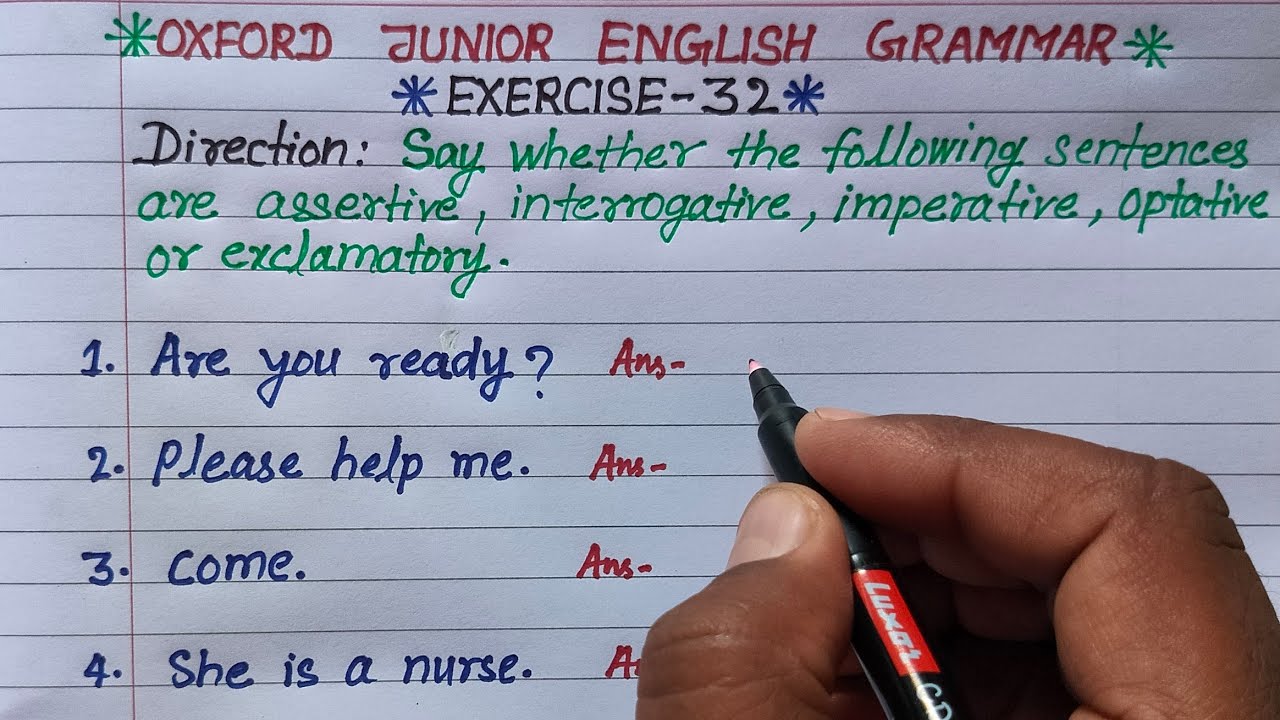 *OXFORD JUNIOR ENGLISH GRAMMAR*
*EXERCISE-32*
Direction: Say whether the following sentences
are assertive, interrogative, imperative, optative
or exclamatory.
1. Are you ready? Ans-
2. Please help me. Ans-
3. come. Ans-
4. She is a nurse.
Luxor